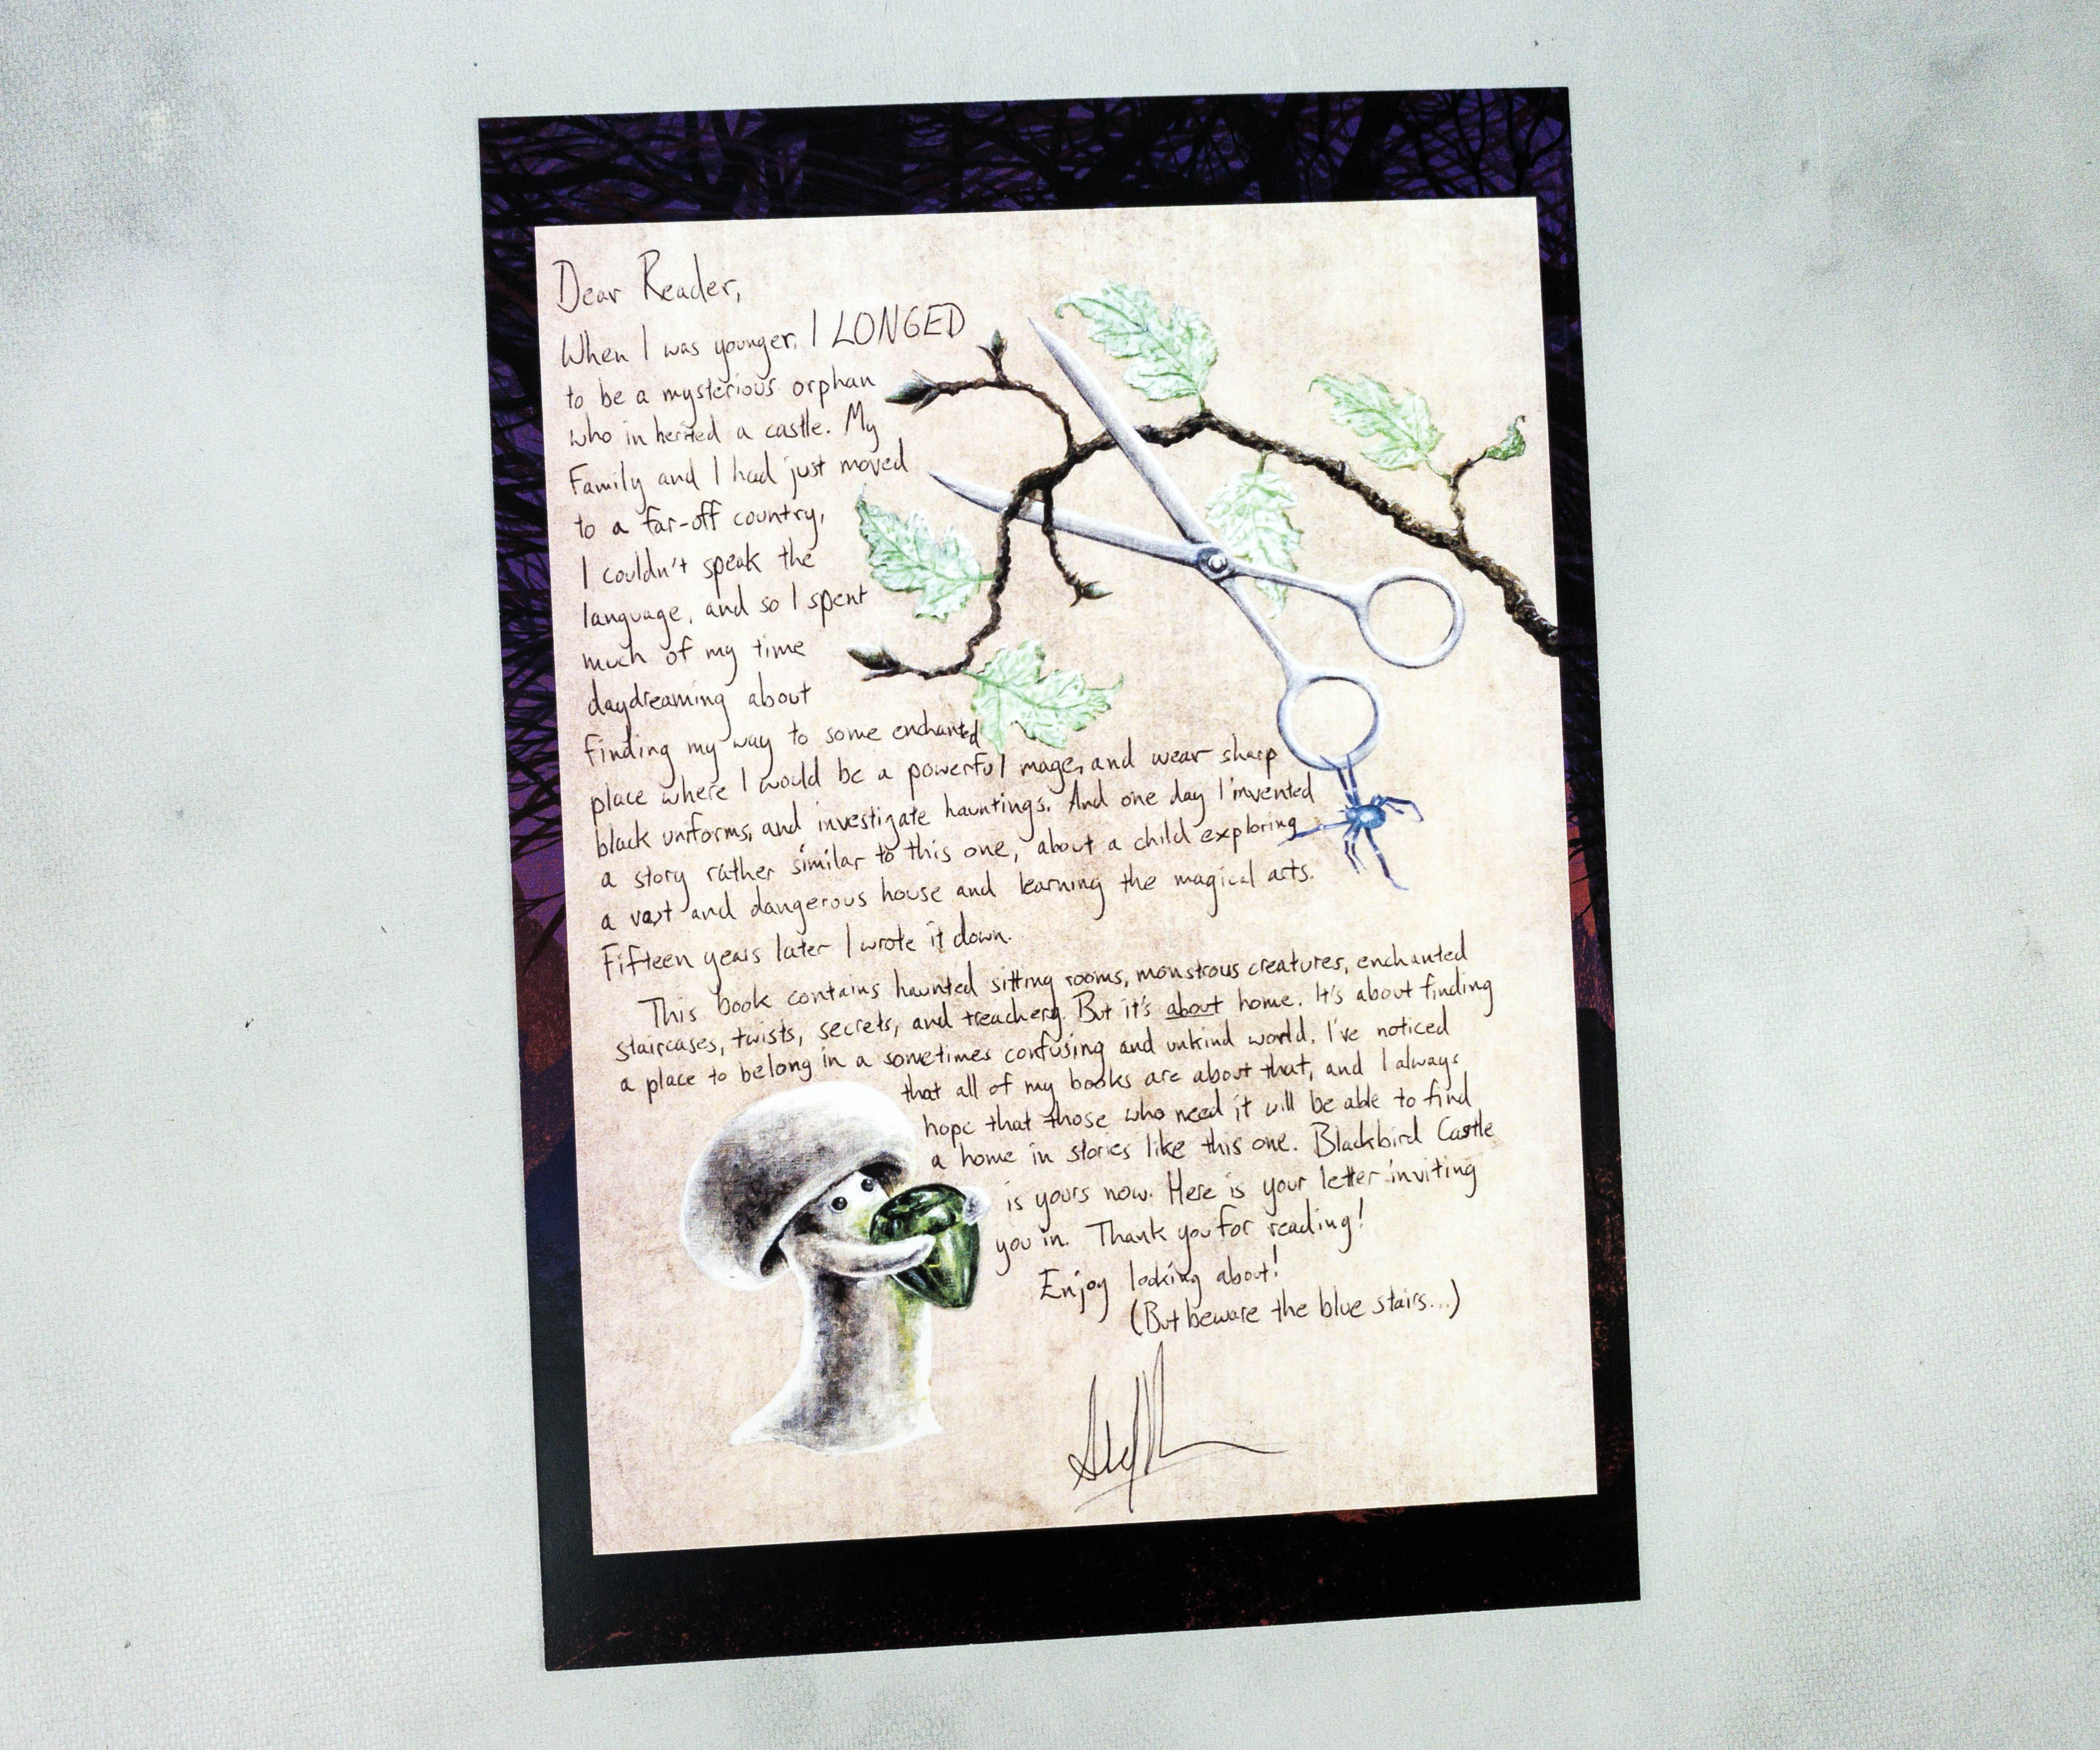 Dear Reader,
When I was younger, I LONGED
to be a mysterious orphan
who inherited a castle. My
Family and I had just moved
to a far-off country,
I couldn't speak the
language, and so I spent
much of my time
daydreaming about
finding my way to some enchanted
place where I would be a powerful mage, and wear sharp
black uniforms, and investigate hauntings. And one day I invented
a story rather similar to this one, about a child exploring
a vast and dangerous house and learning the magical arts.
Fifteen years later I wrote it down.
This book contains haunted sitting rooms, monstrous creatures, enchanted
staircases, twists, secrets, and treachery. But it's about home. It's about finding
a place to belong in a sometimes confusing and unkind world. I've noticed
that all of my books are about that, and I always
hope that those who need it will be able to find
a home in stories like this one. Blackbird Castle
is yours now. Here is your letter inviting
you in. Thank you for reading!
Enjoy looking about!
(But beware the blue stairs...)